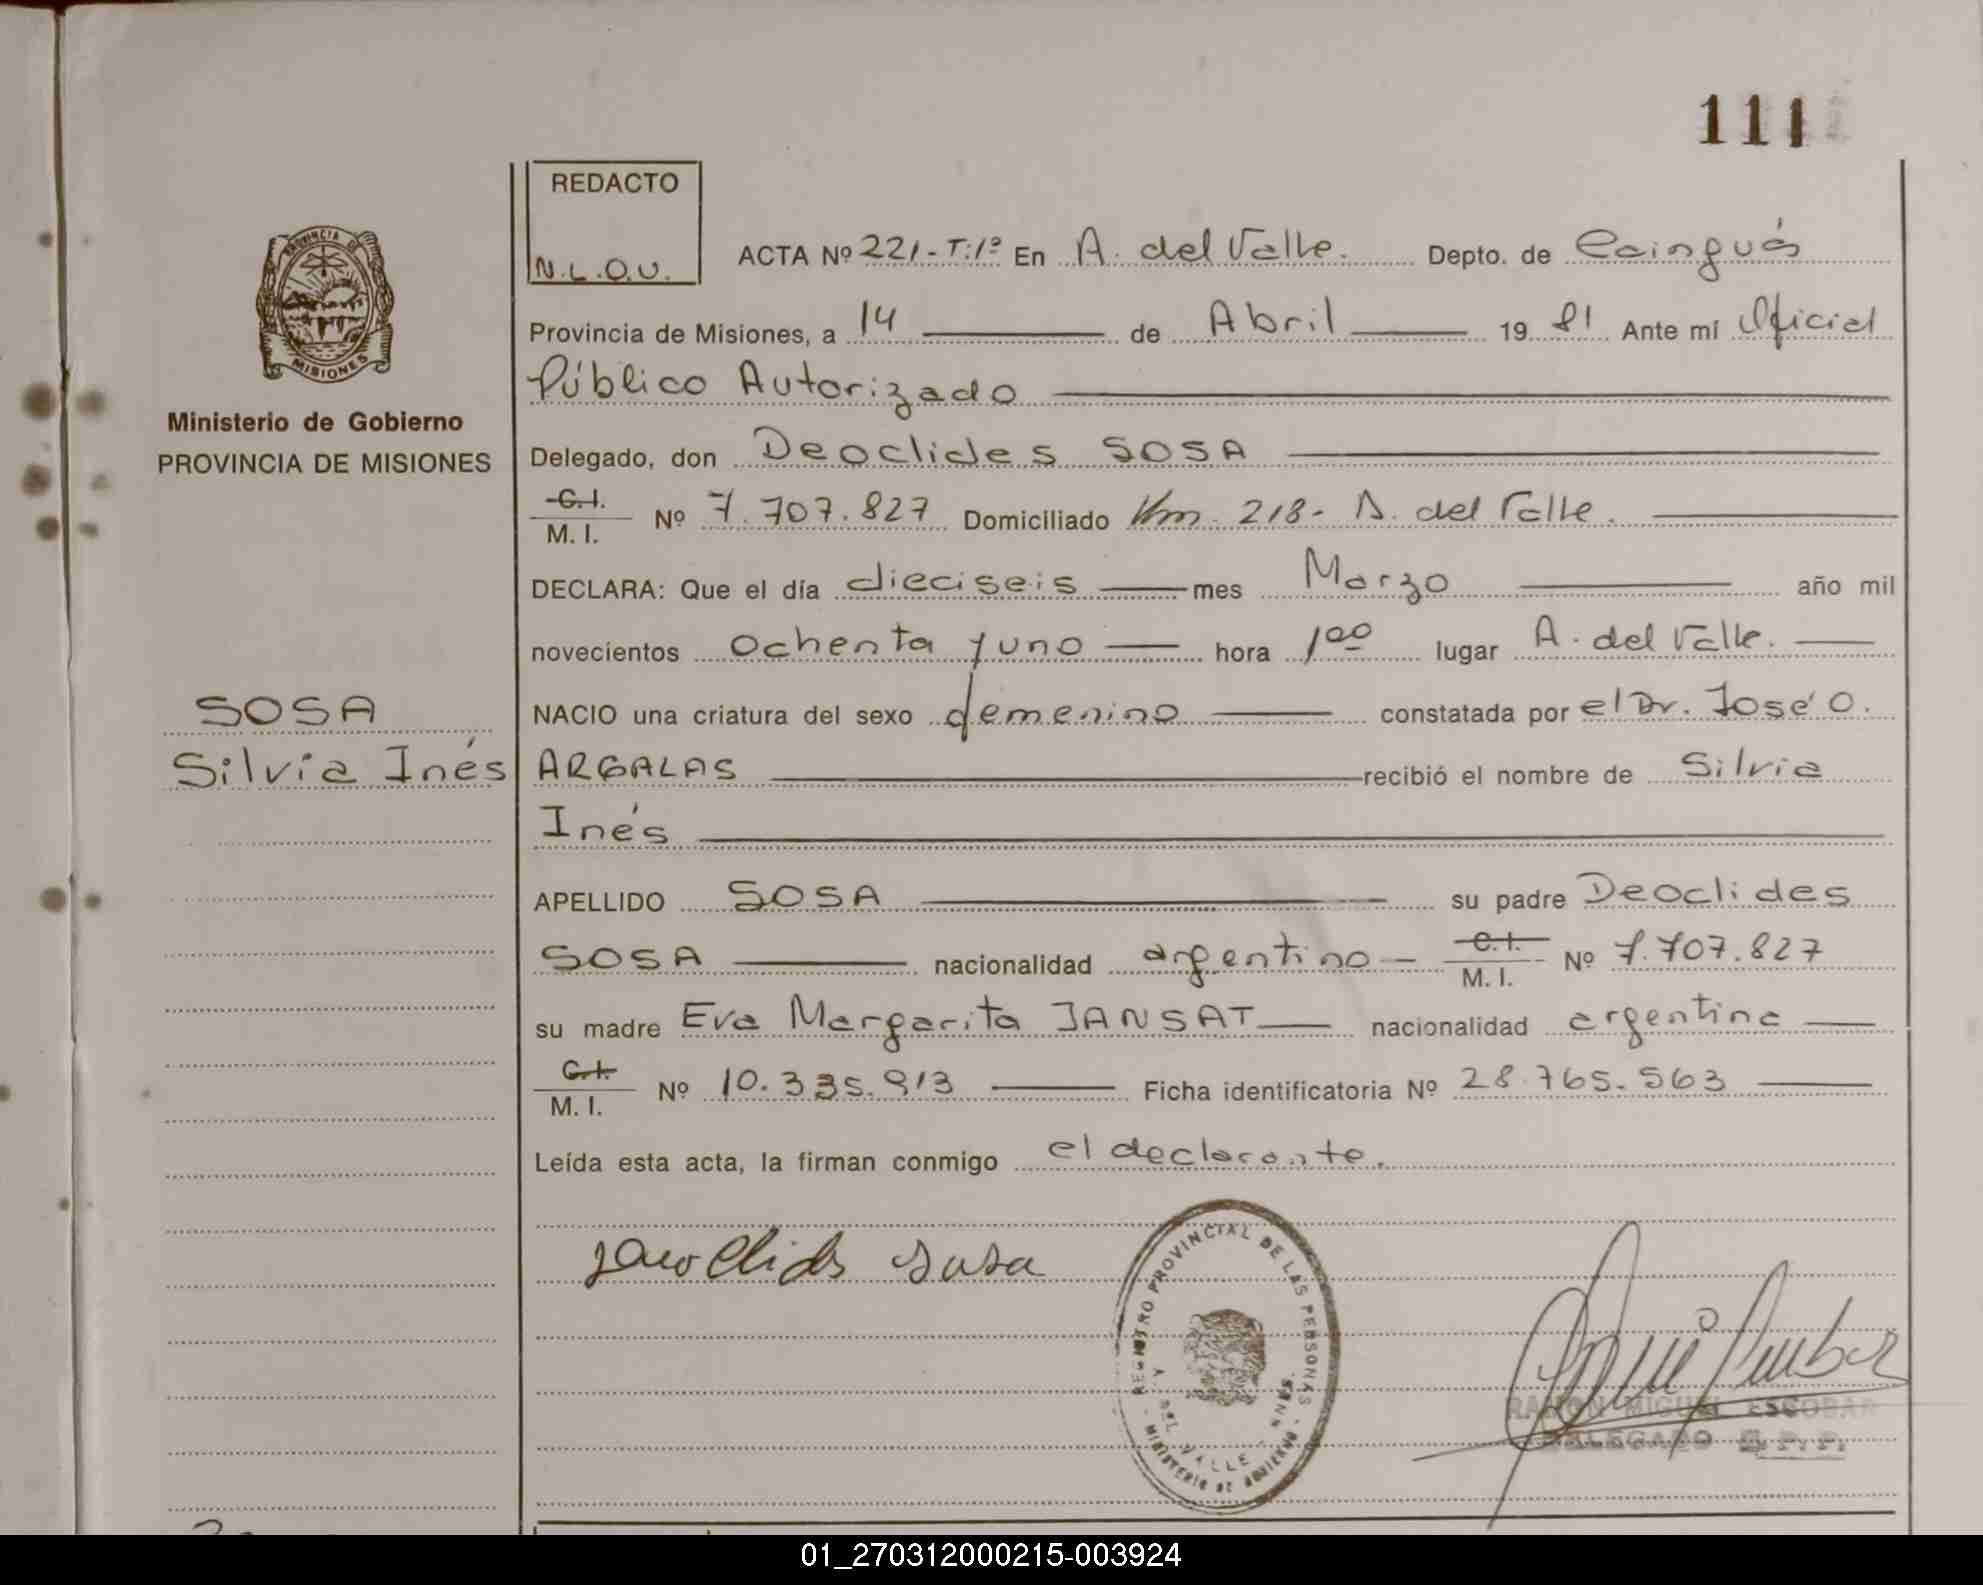 111
REDACTO
N.L.O.U.
ACTA Nº 221-T:1º En A. del Valle. Depto. de Cainguás
Provincia de Misiones, a 14 de Abril 19 81 Ante mí Oficial
Público Autorizado
Delegado, don Deoclides SOSA
C.I.
M. I. Nº 7.707.827 Domiciliado Km. 218- A. del Valle.
DECLARA: Que el día dieciseis mes Marzo año mil
novecientos ochenta y uno hora 1ºº lugar A. del Valle.
NACIO una criatura del sexo femenino constatada por el Dr. José O.
ARGALAS recibió el nombre de Silvia
Inés
APELLIDO SOSA su padre Deoclides
SOSA nacionalidad argentino C.I. M. I. Nº 7.707.827
su madre Eva Margarita JANSAT nacionalidad argentina
C.I.
M. I. Nº 10.335.913 Ficha identificatoria Nº 28.765.563
Leída esta acta, la firman conmigo el declarante.
PROVINCIA DE
MISIONES
Ministerio de Gobierno
PROVINCIA DE MISIONES
SOSA
Silvia Inés
sosa
REGISTRO PROVINCIAL DE LAS PERSONAS
DEL VALLE
MINISTERIO DE GOBIERNO
RAMON MIGUEL ESCOBAR
DELEGADO
01_270312000215-003924